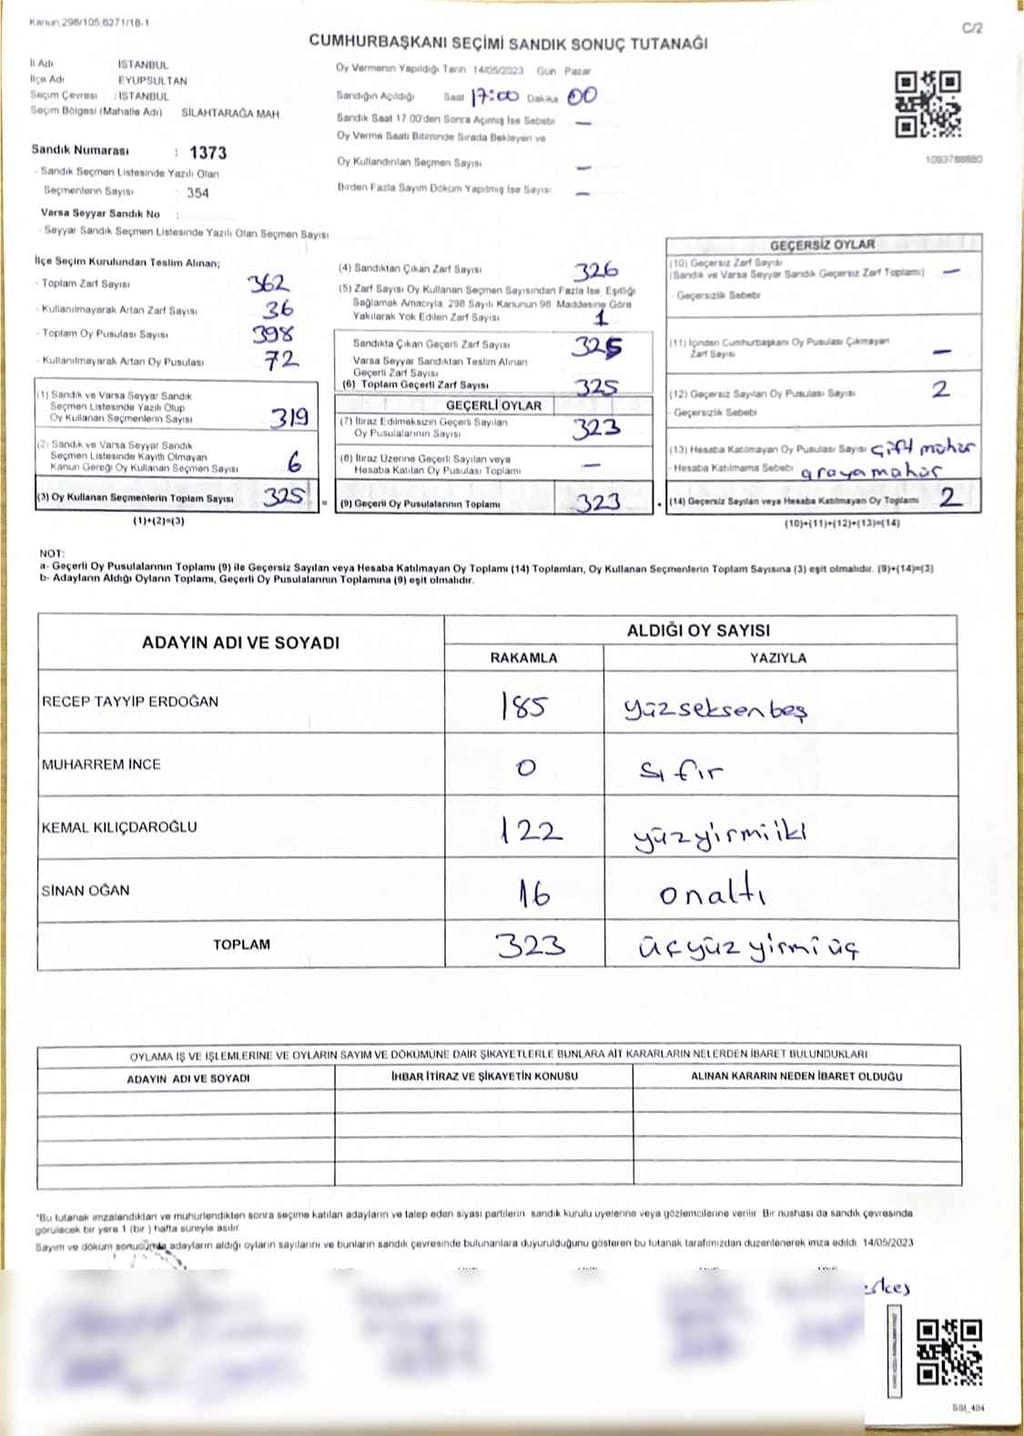 Kanun 298/105 6271/18-1
C/2
CUMHURBAŞKANI SEÇİMİ SANDIK SONUÇ TUTANAĞI
İl Adı : İSTANBUL
İlçe Adı : EYÜPSULTAN
Seçim Çevresi : İSTANBUL
Seçim Bölgesi (Mahalle Adı) SİLAHTARAĞA MAH
Sandık Numarası : 1373
- Sandık Seçmen Listesinde Yazılı Olan
Seçmenlerin Sayısı : 354
Varsa Seyyar Sandık No :
- Seyyar Sandık Seçmen Listesinde Yazılı Olan Seçmen Sayısı
Oy Vermenin Yapıldığı Tarih 14/05/2023 Gün Pazar
Sandığın Açıldığı Saat 17:00 Dakika 00
Sandık Saat 17 00'den Sonra Açımış İse Sebebi —
Oy Verme Saati Bitiminde Sırada Bekleyen ve
Oy Kullandırılan Seçmen Sayısı —
Birden Fazla Sayım Döküm Yapılmış İse Sayısı —
1093788880
İlçe Seçim Kurulundan Teslim Alınan;
- Toplam Zarf Sayısı 362
- Kullanılmayarak Artan Zarf Sayısı 36
- Toplam Oy Pusulası Sayısı 398
- Kullanılmayarak Artan Oy Pusulası 72
(1) Sandık ve Varsa Seyyar Sandık
Seçmen Listesinde Yazılı Olup
Oy Kullanan Seçmenlerin Sayısı 319
(2) Sandık ve Varsa Seyyar Sandık
Seçmen Listesinde Kayıtlı Olmayan
Kanun Gereği Oy Kullanan Seçmen Sayısı 6
(3) Oy Kullanan Seçmenlerin Toplam Sayısı 325 =
(1)+(2)=(3)
(4) Sandıktan Çıkan Zarf Sayısı 326
(5) Zarf Sayısı Oy Kullanan Seçmen Sayısından Fazla İse, Eşitliği
Sağlamak Amacıyla 298 Sayılı Kanunun 98 Maddesine Göre
Yakılarak Yok Edilen Zarf Sayısı 1
Sandıkta Çıkan Geçerli Zarf Sayısı 325
Varsa Seyyar Sandıktan Teslim Alınan
Geçerli Zarf Sayısı
(6) Toplam Geçerli Zarf Sayısı 325
GEÇERLİ OYLAR
(7) İtiraz Edilmeksizin Geçerli Sayılan
Oy Pusulalarının Sayısı 323
(8) İtiraz Üzerine Geçerli Sayılan veya
Hesaba Katılan Oy Pusulası Toplamı —
(9) Geçerli Oy Pusulalarının Toplamı 323 +
GEÇERSİZ OYLAR
(10) Geçersiz Zarf Sayısı
(Sandık ve Varsa Seyyar Sandık Geçersiz Zarf Toplamı) —
- Geçersizlik Sebebi
(11) İçinden Cumhurbaşkanı Oy Pusulası Çıkmayan
Zarf Sayısı —
(12) Geçersiz Sayılan Oy Pusulası Sayısı 2
- Geçersizlik Sebebi
(13) Hesaba Katılmayan Oy Pusulası Sayısı çift mühür
- Hesaba Katılmama Sebebi araya mühür
(14) Geçersiz Sayılan veya Hesaba Katılmayan Oy Toplamı 2
(10)+(11)+(12)+(13)=(14)
NOT:
a- Geçerli Oy Pusulalarının Toplamı (9) ile Geçersiz Sayılan veya Hesaba Katılmayan Oy Toplamı (14) Toplamları, Oy Kullanan Seçmenlerin Toplam Sayısına (3) eşit olmalıdır. (9)+(14)=(3)
b- Adayların Aldığı Oyların Toplamı, Geçerli Oy Pusulalarının Toplamına (9) eşit olmalıdır.
ADAYIN ADI VE SOYADI
ALDIĞI OY SAYISI
RAKAMLA YAZIYLA
RECEP TAYYİP ERDOĞAN 185 yüzseksenbeş
MUHARREM İNCE 0 sıfır
KEMAL KILIÇDAROĞLU 122 yüzyirmiiki
SİNAN OĞAN 16 onaltı
TOPLAM 323 üçyüzyirmiüç
OYLAMA İŞ VE İŞLEMLERİNE VE OYLARIN SAYIM VE DÖKÜMÜNE DAİR ŞİKAYETLERLE BUNLARA AİT KARARLARIN NELERDEN İBARET BULUNDUKLARI
ADAYIN ADI VE SOYADI İHBAR İTİRAZ VE ŞİKAYETİN KONUSU ALINAN KARARIN NEDEN İBARET OLDUĞU
*Bu tutanak imzalandıktan ve mühürlendikten sonra seçime katılan adayların ve talep eden siyasi partilerin sandık kurulu üyelerine veya gözlemcilerine verilir. Bir nüshası da sandık çevresinde
görülecek bir yere 1 (bir ) hafta süreyle asılır
Sayım ve döküm sonucunda adayların aldığı oyların sayılarını ve bunların sandık çevresinde bulunanlara duyurulduğunu gösteren bu tutanak tarafımızdan düzenlenerek imza edildi 14/05/2023